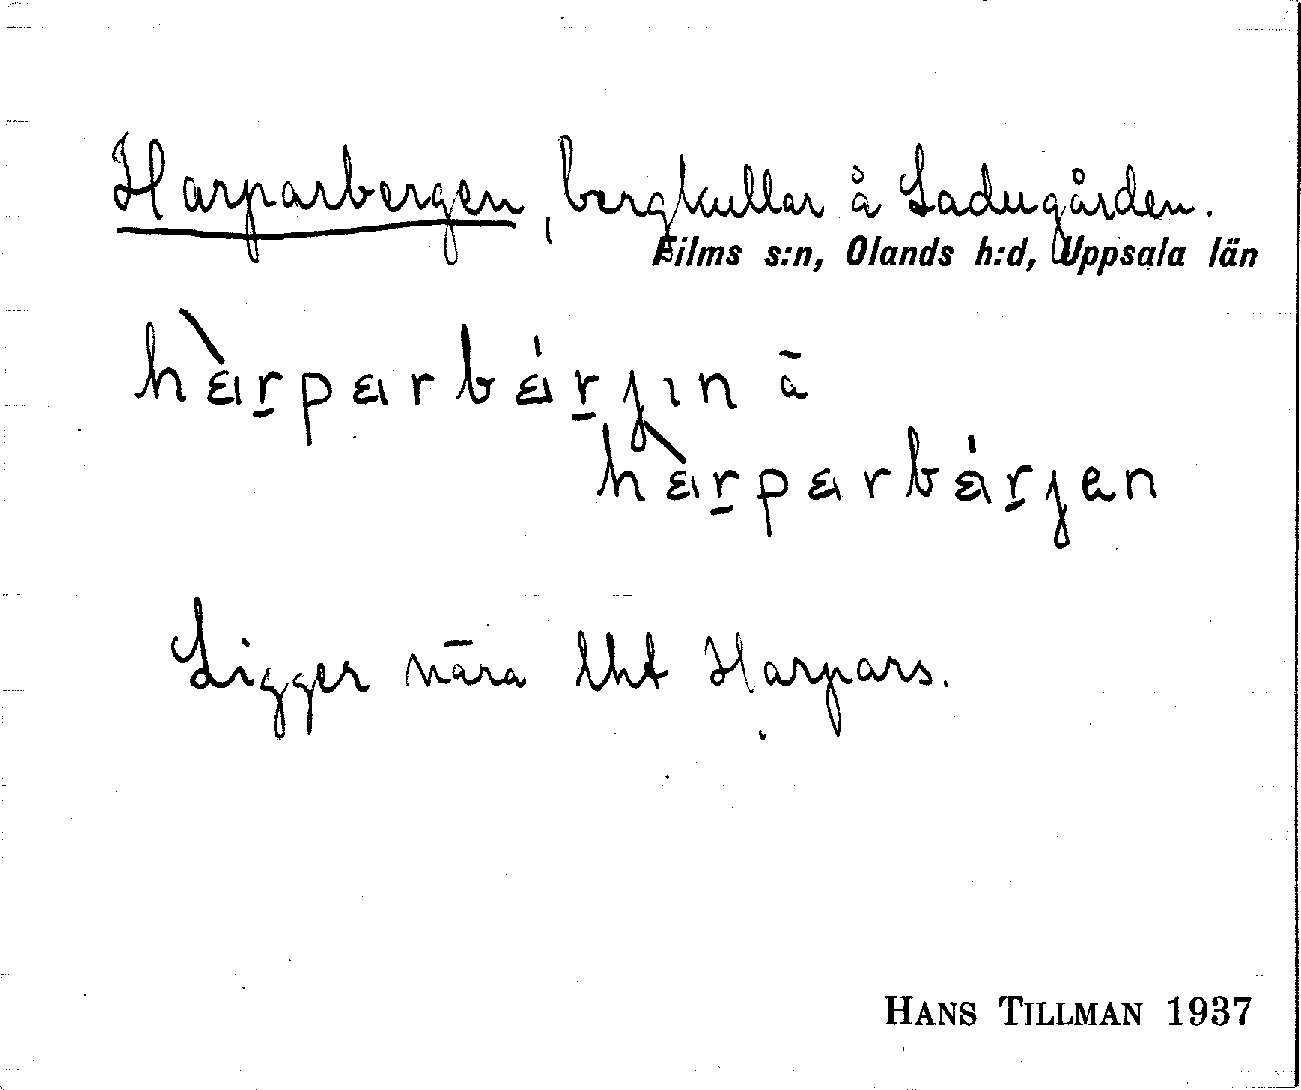 Harparbergen, bergkullar å Ladugården.
Films s:n, Olands h:d, Uppsala län
hàr̠parbár̠jɪn ā
hàr̠parbár̠jen
Ligger nära lht Harpars.
HANS TILLMAN 1937